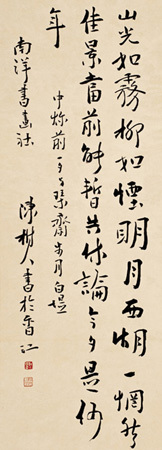 山光如霧柳如煙明月西湖一惘然
佳景當前能暫共休論今夕是何
年
中秌前一夕与琴齋步月白堤
南洋書畫社
陳樹人書於香江